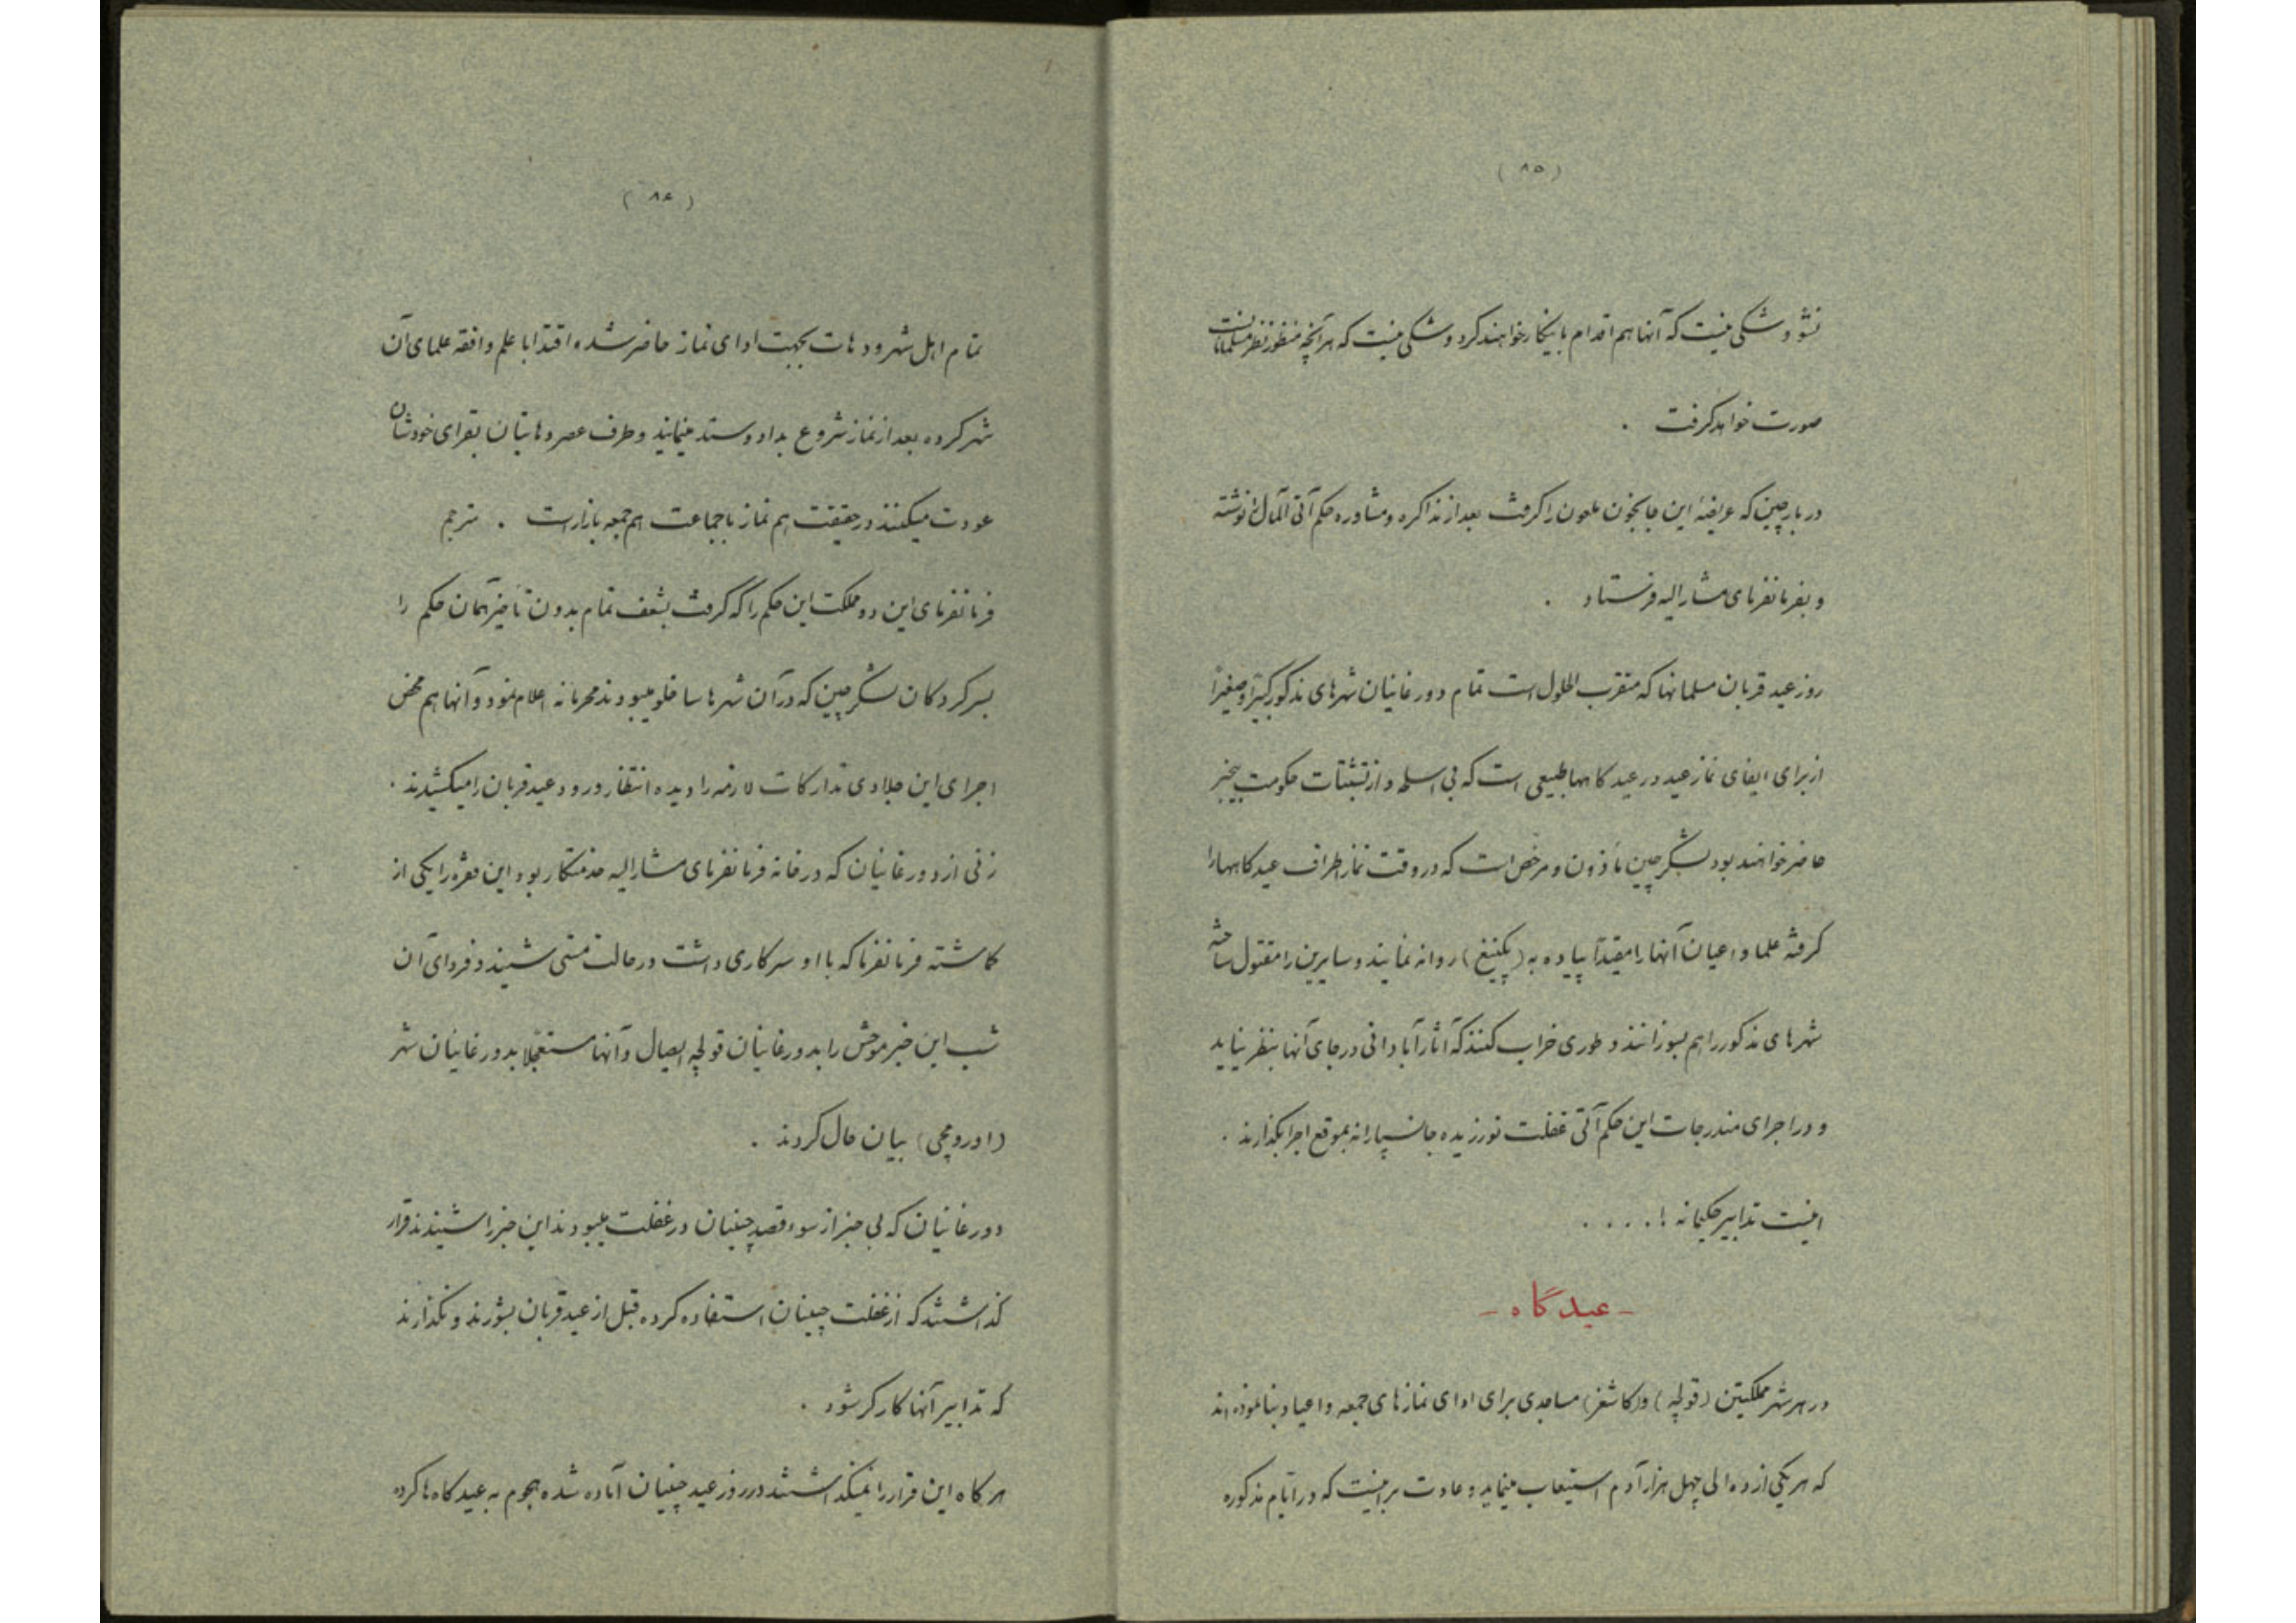 (۸۵)
نشو و شکی نیست که آنها هم اقدام باینکار خواهند کرد و شکی نیست که هر آنچه منظور نظر مسلمانانست
صورت خواهد گرفت .
دربار چین که عریضهٔ این جانجون ملعون را گرفت بعد از مذاکره و مشاوره حکم آتی المآل را نوشته
و بفرمانفرمای مشارالیه فرستاد .
روز عید قربان مسلمانها که منقرب الحلول است تمام دورغانیان شهرهای مذکور کبیراً و صغیراً
از برای ایفای نماز عید در عیدگاهها طبیعی است که بی اسلحه و از تشبثات حکومت بیخبر
حاضر خواهند بود لشکر چین مأذون و مرخص است که در وقت نماز اطراف عیدگاهها را
گرفته علما و اعیان آنها را مقیداً پیاده به (پکینغ) روانه نمایند و سایرین را مقتول ساخته
شهرهای مذکور را هم بسوزانند و طوری خراب کنند که آثار آبادانی در جای آنها بنظر نیاید
و در اجرای مندرجات این حکم آتی غفلت نورزیده جانسپارانه بموقع اجرا بگذارند .
اینست تدابیر حکیمانه ! . . . .
- عیدگاه -
در هر شهر مملکتین (قولجه) و (کاشغر) مساجدی برای ادای نمازهای جمعه و اعیاد بنا نموده اند
که هر یکی از ده الی چهل هزار آدم استیعاب مینماید و عادت بر اینست که در ایام مذکوره
(۸۶)
تمام اهل شهر و دهات بجهت ادای نماز حاضر شده اقتدا با علم و افقه علمای آن
شهر کرده بعد از نماز شروع بداد و ستد مینمایند و طرف عصر دهاتیان بقرای خودشان
عودت میکنند در حقیقت هم نماز با جماعت هم جمعه بازار است . مترجم
فرمانفرمای این دو مملکت این حکم را که گرفت بشعف تمام بدون تأخیر همان حکم را
بسرکردگان لشکر چین که در آن شهرها ساخلو میبودند محرمانه اعلام نمود و آنها هم محض
اجرای این جلادی تدارکات لازمه را دیده انتظار ورود عید قربان را میکشیدند .
زنی از دورغانیان که در خانه فرمانفرمای مشارالیه خدمتکار بود این فقره را یکی از
گماشته فرمانفرما که با او سر کاری داشت در حالت مستی شنید و فردای آن
شب این خبر موحش را بدورغانیان قولجه ایصال و آنها مستعجلاً بدورغانیان شهر
(اورومچی) بیان حال کردند .
دورغانیان که بی خبر از سوء قصد چینیان در غفلت میبودند این خبر را شنیدند قرار
گذاشتند که از غفلت چینیان استفاده کرده قبل از عید قربان بشورند و نگذارند
که تدابیر آنها کارگر شود .
هرگاه این قرار را نمیگذاشتند در روز عید چینیان آماده شده هجوم به عیدگاه ها کرده